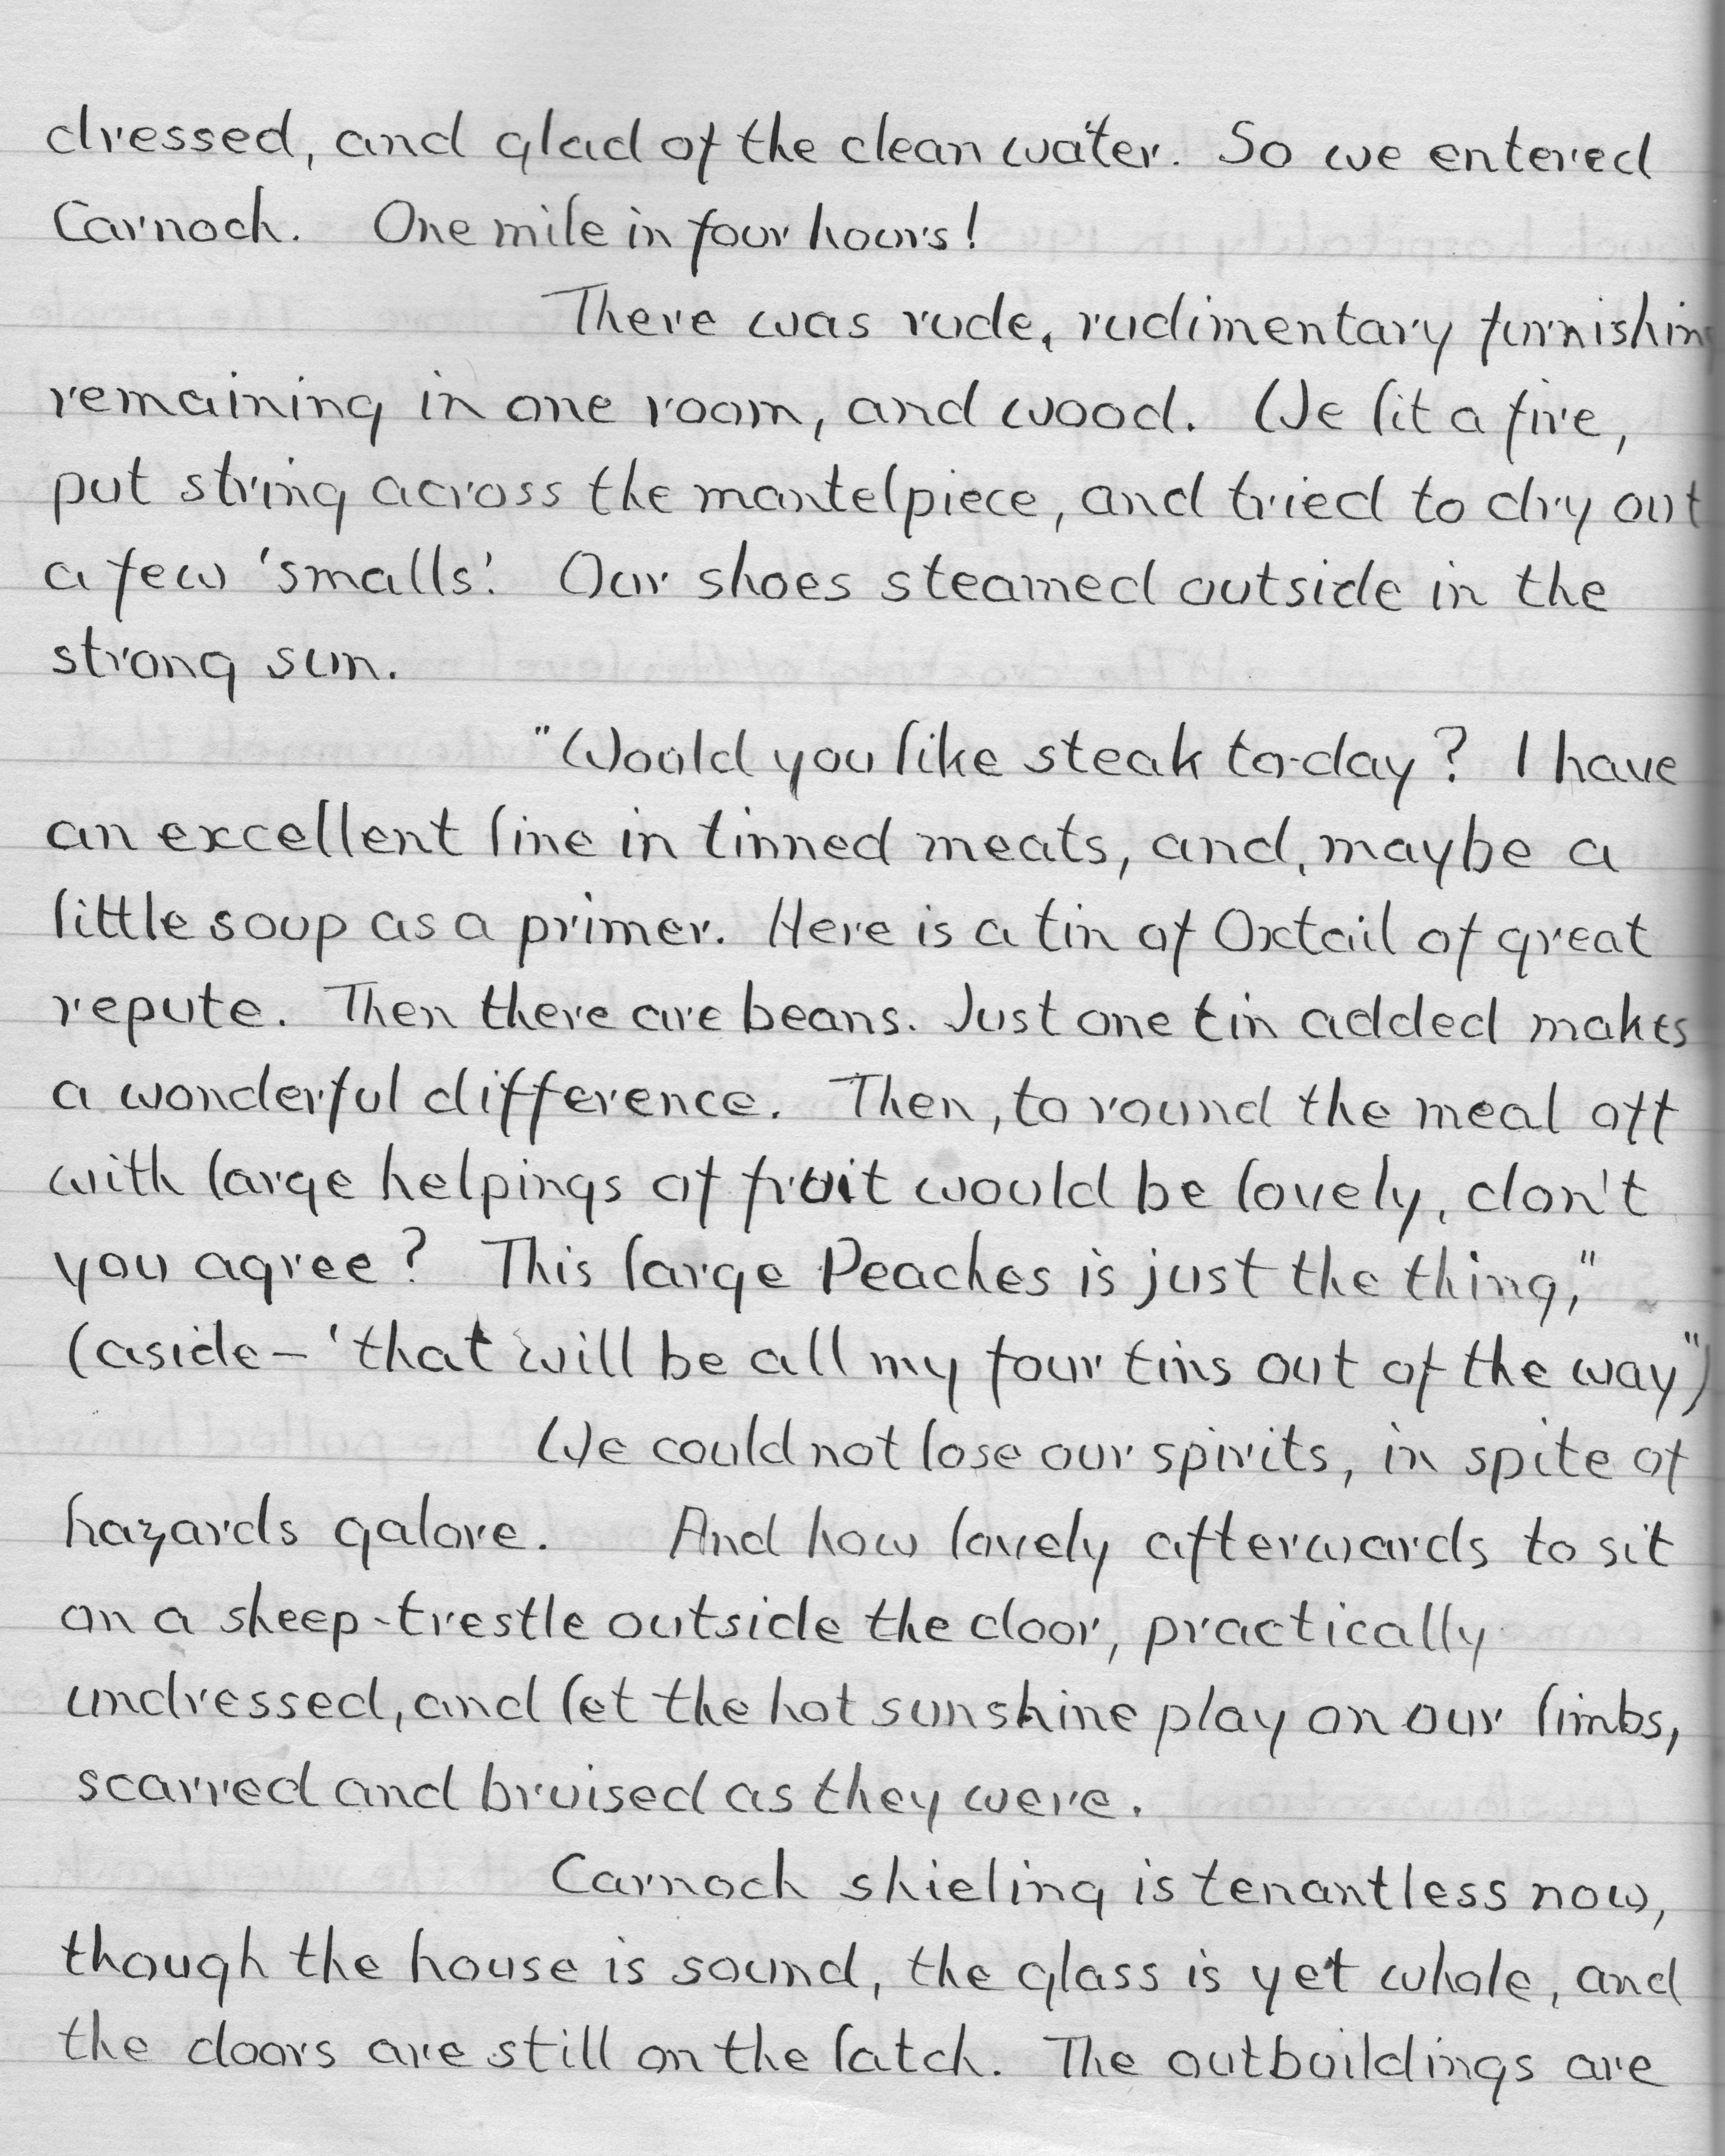 dressed, and glad of the clean water. So we entered
Carnoch. One mile in four hours!
There was rude, rudimentary furnishing
remaining in one room, and wood. We lit a fire,
put string across the mantelpiece, and tried to dry out
a few 'smalls'. Our shoes steamed outside in the
strong sun.
"Would you like steak to-day? I have
an excellent line in tinned meats, and, maybe a
little soup as a primer. Here is a tin of Oxtail of great
repute. Then there are beans. Just one tin added makes
a wonderful difference. Then, to round the meal off
with large helpings of fruit would be lovely, don't
you agree? This large Peaches is just the thing,"
(aside – 'that will be all my four tins out of the way")
We could not lose our spirits, in spite of
hazards galore. And how lovely afterwards to sit
on a sheep-trestle outside the door, practically
undressed, and let the hot sunshine play on our limbs,
scarred and bruised as they were.
Carnoch shieling is tenantless now,
though the house is sound, the glass is yet whole, and
the doors are still on the latch. The outbuildings are